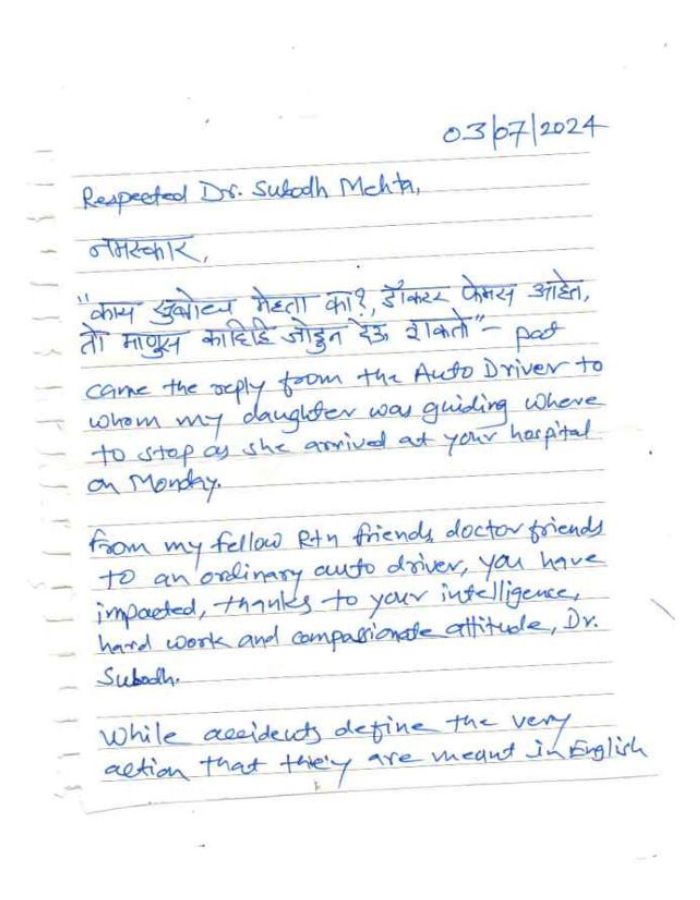 03/07/2024
Respected Dr. Subodh Mehta,
नमस्कार,
"काय सुबोध मेहता का?, डॉक्टर फेमस आहेत,
तो माणुस काहिहि जोडुन देऊ शकतो" – pat
came the reply from the Auto Driver to
whom my daughter was guiding where
to stop as she arrived at your hospital
on Monday.
From my fellow Rtn friends, doctor friends
to an ordinary auto driver, you have
impacted, thanks to your intelligence,
hard work and compassionate attitude, Dr.
Subodh.
While accidents define the very
action that they are meant in English